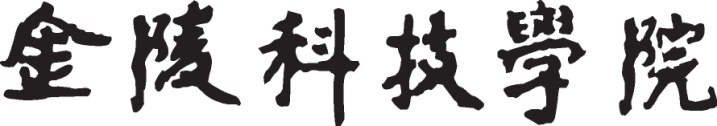 金陵科技學院